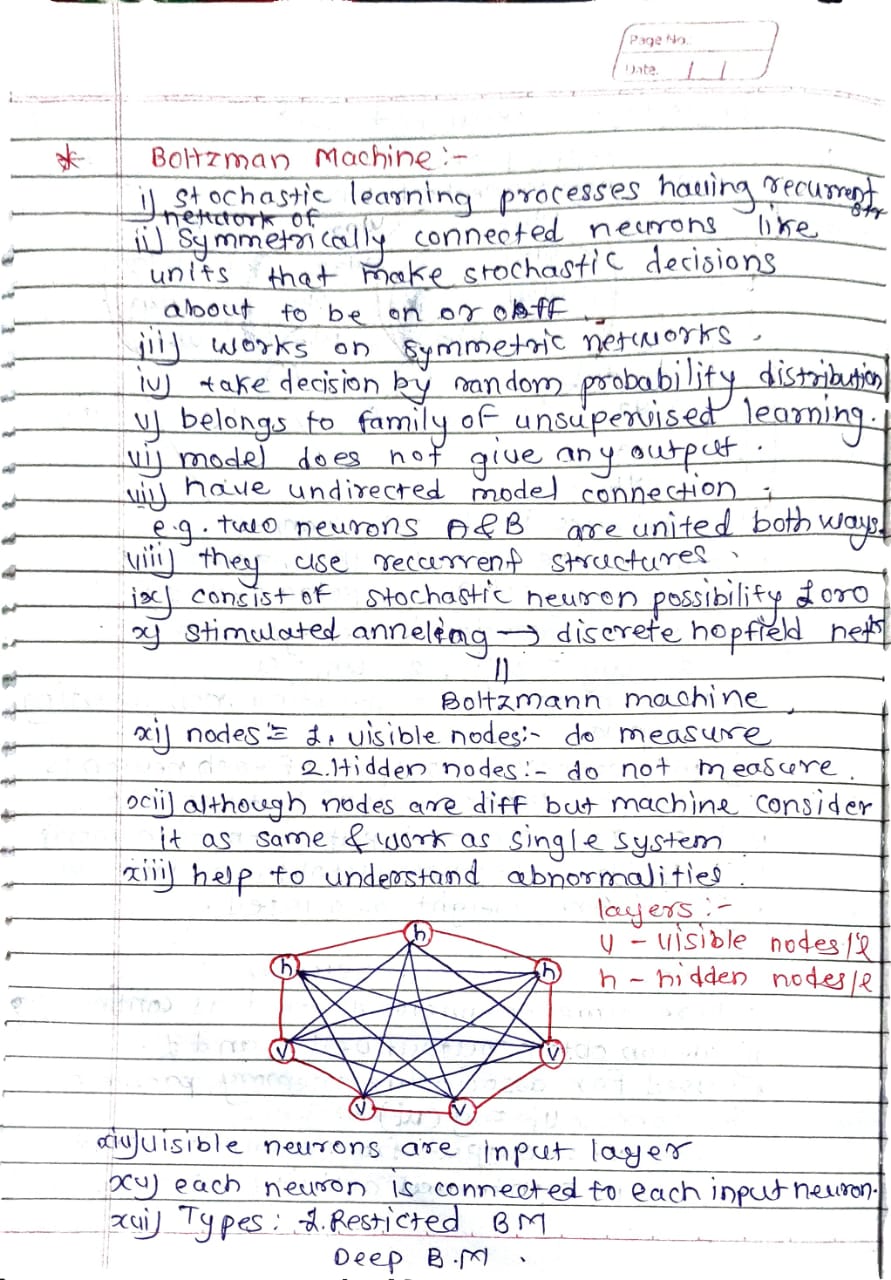 Page No.
Date. / /
* Boltzman Machine :-
i) stochastic learning processes having recurrent str
network of
ii) Symmetrically connected neurons like
units that make stochastic decisions
about to be on or off
iii) works on symmetric networks.
iv) take decision by random probability distribution
v) belongs to family of unsupervised learning.
vi) model does not give any output.
vii) have undirected model connection ;
e.g. two neurons A & B are united both ways.
viii) they use recurrent structures.
ix) consist of stochastic neuron possibility 1 or 0
x) stimulated anneling → discrete hopfield nets
||
Boltzmann machine
xi) nodes :- 1. visible nodes:- do measure
2. Hidden nodes :- do not measure.
xii) although nodes are diff but machine consider
it as same & work as single system
xiii) help to understand abnormalities.
layers :-
v - visible nodes/l
h - hidden nodes/l
h
h
h
v
v
v
v
xiv) visible neurons are input layer
xv) each neuron is connected to each input neuron.
xvi) Types : 1. Resticted BM
Deep B.M.